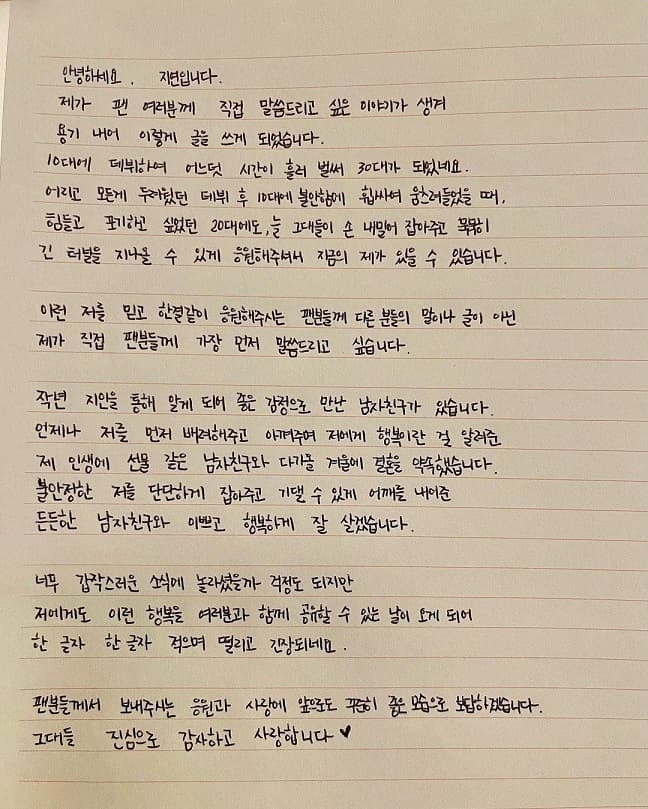 안녕하세요. 지연입니다.
제가 팬 여러분께 직접 말씀드리고 싶은 이야기가 생겨
용기 내어 이렇게 글을 쓰게 되었습니다.
10대에 데뷔하여 어느덧 시간이 흘러 벌써 30대가 되었네요.
어리고 모든게 두려웠던 데뷔 후 10대에 불안함에 휩싸여 움츠려들었을 때,
힘들고 포기하고 싶었던 20대에도, 늘 그대들이 손 내밀어 잡아주고 묵묵히
긴 터널을 지나올 수 있게 응원해주셔서 지금의 제가 있을 수 있습니다.
이런 저를 믿고 한결같이 응원해주시는 팬분들께 다른 분들의 말이나 글이 아닌
제가 직접 팬분들께 가장 먼저 말씀드리고 싶습니다.
작년 지안을 통해 알게 되어 좋은 감정으로 만난 남자친구가 있습니다.
언제나 저를 먼저 배려해주고 아껴주며 저에게 행복이란 걸 알려준
제 인생에 선물 같은 남자친구와 다가올 겨울에 결혼을 약속했습니다.
불안정한 저를 단단하게 잡아주고 기댈 수 있게 어깨를 내어준
든든한 남자친구와 이쁘고 행복하게 잘 살겠습니다.
너무 갑작스러운 소식에 놀라셨을까 걱정도 되지만
저에게도 이런 행복을 여러분과 함께 공유할 수 있는 날이 오게 되어
한 글자 한 글자 적으며 떨리고 긴장되네요.
팬분들께서 보내주시는 응원과 사랑에 앞으로도 꾸준히 좋은 모습으로 보답하겠습니다.
그대들 진심으로 감사하고 사랑합니다 ♥